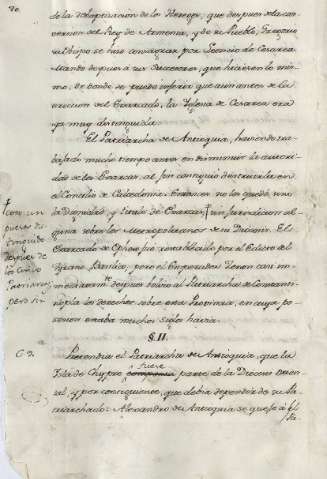 de la Usurpacion de los Hereges, que despues de la con-
version del Rey de Armenia, y de su Pueblo, Gregorio
su Obispo se hizo consagrar por Leoncio de Cesarea
Mandò despues à sus Successores, que hiciesen lo mis-
mo. De donde se puede inferir que aun antes de la
ereccion del Exarcado, la Iglesia de Cesarea era
ya muy distinguida.
El Patriarcha de Antioquia, haviendo tra-
bajado mucho tiempo antes en disminuir la autori-
dad de los Exarcas, al fin consiguio destruirla en
el Concilio de Calcedonia. Entonces no les quedó, sino
la dignidad, y titulo de Exarcas, sin Jurisdiccion al-
guna sobre los Metropolitanos de su Diocesis. El
Exarcado de Epheso fue restablecido por el Edicto del
Tyrano Basilico, pero el Emperador Zenon casi in-
mediatamente despues bolvió al Patriarcha de Constanti-
nopla los derechos sobre esta Provincia, en cuya po-
session estaba muchos siglos havia.
con un
puesto
distinguido
despues de
los cinco
Patriarcas,
pero sin
§. II.
C. 3.
Pretendia el Patriarcha de Antioquia, que la
Isla de Chypre fuese parte de la Diocesi Orien-
tal, y por consiguiente, que debia depender de su Pa-
triarchado: Alexandro de Antioquia se quejó à